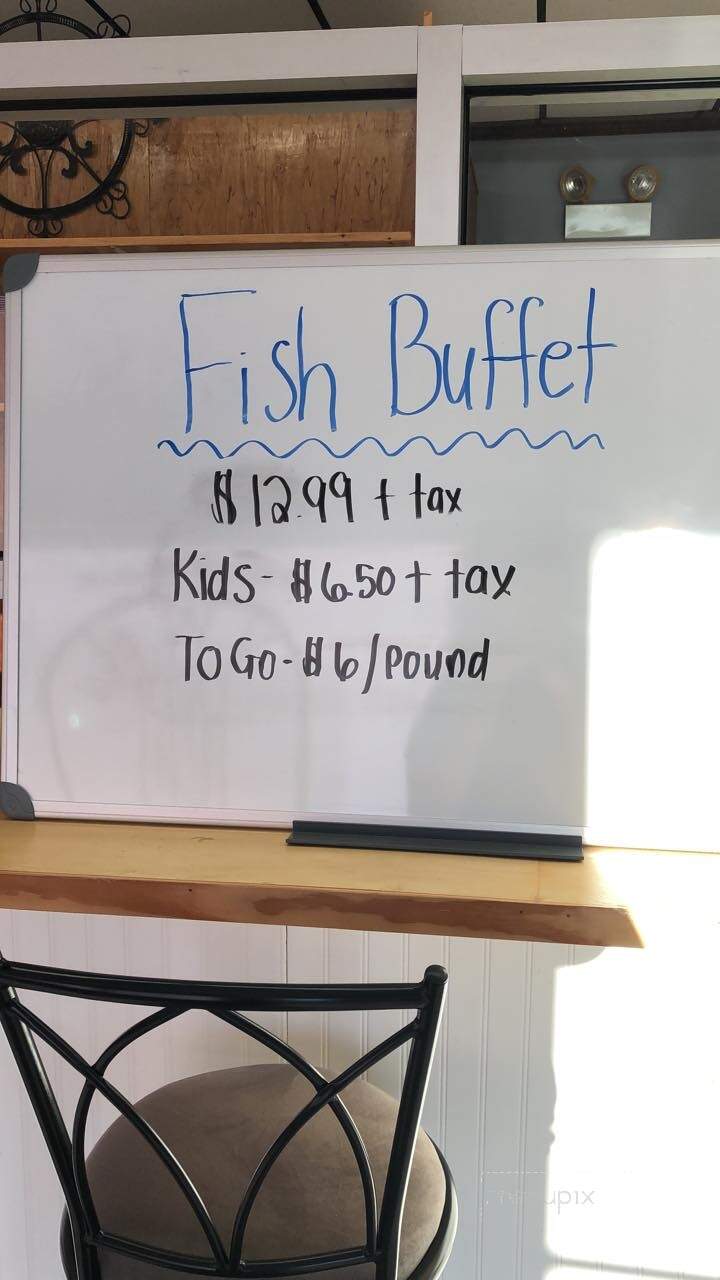 Fish Buffet
$12.99 + tax
Kids - $6.50 + tax
To Go - $6/pound